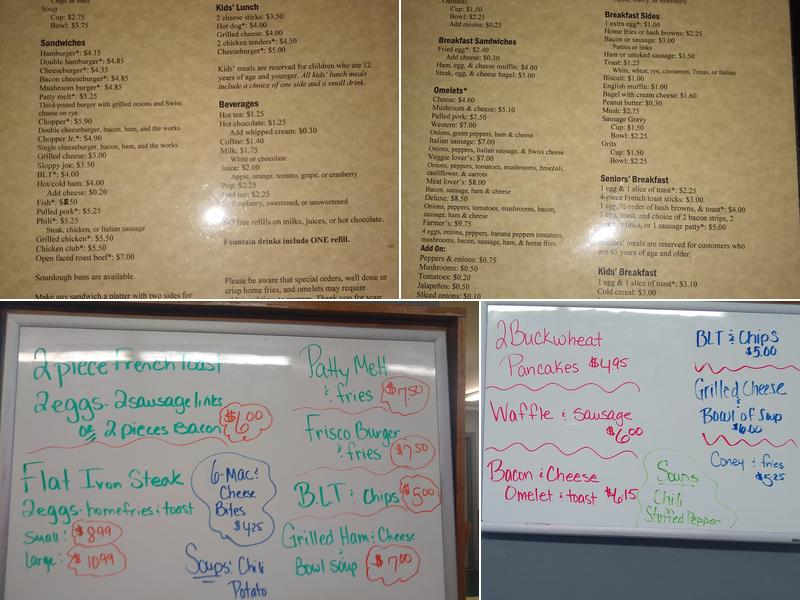 Soup
Cup: $2.75
Bowl: $3.75
Sandwiches
Hamburger*: $4.15
Double hamburger*: $4.85
Cheeseburger*: $4.35
Bacon cheeseburger*: $4.85
Mushroom burger*: $4.85
Patty melt*: $5.25
Third-pound burger with grilled onions and Swiss
cheese on rye
Chopper*: $5.90
Double cheeseburger, bacon, ham, and the works
Chopper Jr.*: $4.90
Single cheeseburger, bacon, ham, and the works
Grilled cheese: $3.00
Sloppy joe: $3.50
BLT*: $4.00
Hot/cold ham: $4.00
Add cheese: $0.20
Fish*:
Pulled pork*: $5.25
Phili*: $5.25
Steak, chicken, or Italian sausage
Grilled chicken*: $5.50
Chicken club*: $5.50
Open faced roast beef*: $7.00
Sourdough buns are available.
Make any sandwich a platter with two sides for
Kids' Lunch
2 cheese sticks: $3.50
Hot dog*: $4.00
Grilled cheese: $4.00
2 chicken tenders*: $4.50
Cheeseburger*: $5.00
Kids' meals are reserved for children who are 12
years of age and younger. All kids' lunch meals
include a choice of one side and a small drink.
Beverages
Hot tea: $1.25
Hot chocolate: $1.25
Add whipped cream: $0.30
Coffee: $1.40
Milk: $1.75
White or chocolate
Juice: $2.00
Apple, orange, tomato, grape, or cranberry
Pop: $2.25
Iced tea: $2.25
Raspberry, sweetened, or unsweetened
NO free refills on milks, juices, or hot chocolate.
Fountain drinks include ONE refill.
Please be aware that special orders, well done or
crisp home fries, and omelets may require
Oatmeal:
Cup: $1.50
Bowl: $2.25
Add raisins: $0.25
Breakfast Sandwiches
Fried egg*: $2.40
Add cheese: $0.30
Ham, egg, & cheese muffin: $4.00
Steak, egg, & cheese bagel: $5.00
Omelets*
Cheese: $4.60
Mushroom & cheese: $5.10
Pulled pork: $7.50
Western: $7.00
Onions, green peppers, ham & cheese
Italian sausage: $7.00
Onions, peppers, Italian sausage, & Swiss cheese
Veggie lover's: $7.00
Onions, peppers, tomatoes, mushrooms, broccoli,
cauliflower, & carrots
Meat lover's: $8.00
Bacon, sausage, ham & cheese
Deluxe: $8.50
Onions, peppers, tomatoes, mushrooms, bacon,
sausage, ham & cheese
Farmer's: $9.75
4 eggs, onions, peppers, banana peppers tomatoes,
mushrooms, bacon, sausage, ham, & home fries
Add On:
Peppers & onions: $0.75
Mushrooms: $0.50
Tomatoes: $0.20
Jalapeños: $0.50
Sliced onions: $0.10
Breakfast Sides
1 extra egg*: $1.00
Home fries or hash browns: $2.25
Bacon or sausage: $3.00
Patties or links
Ham or smoked sausage: $3.50
Toast: $1.25
White, wheat, rye, cinnamon, Texas, or Italian
Biscuit: $1.00
English muffin: $1.00
Bagel with cream cheese: $1.60
Peanut butter: $0.30
Mush: $2.75
Sausage Gravy
Cup: $1.50
Bowl: $2.25
Grits
Cup: $1.50
Bowl: $2.25
Seniors' Breakfast
1 egg & 1 slice of toast*: $2.25
4-piece French toast sticks: $3.00
1 egg, ½ order of hash browns, & toast*: $4.00
1 egg, toast, and choice of 2 bacon strips, 2
links, or 1 sausage patty*: $5.00
Seniors' meals are reserved for customers who
are 65 years of age and older.
Kids' Breakfast
1 egg & 1 slice of toast*: $3.10
Cold cereal: $3.00
2 piece French Toast
2 eggs - 2 sausage links
or 2 pieces Bacon $6.00
Flat Iron Steak
2 eggs - homefries & toast
Small: $8.99
Large: $10.99
6-Mac &
Cheese
Bites
$4.25
Soups: Chili
Potato
Patty Melt
& fries $7.50
Frisco Burger
& fries $7.50
B.L.T & Chips $5.00
Grilled Ham & Cheese
&
Bowl Soup $7.00
2 Buckwheat
Pancakes $4.95
Waffle & Sausage
$6.00
Bacon & Cheese
Omelet & toast $6.15
BLT & Chips
$5.00
Grilled Cheese
&
Bowl of Soup
$6.00
Coney & fries
$5.25
Soups
Chili
Stuffed Pepper